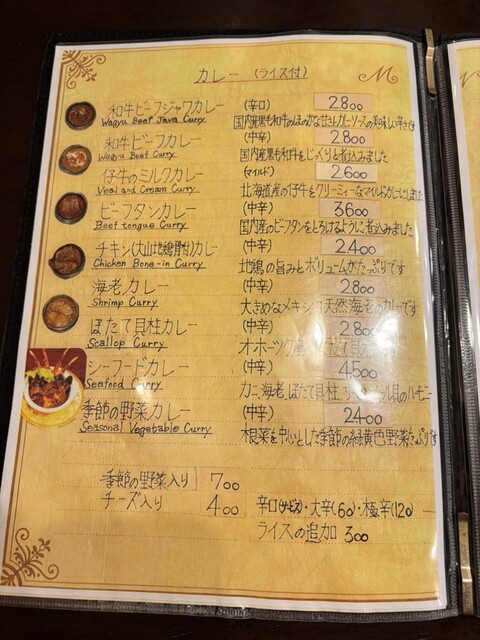 カレー (ライス付)
M
和牛ビーフジャワカレー (辛口) 2800
Wagyu Beef Java Curry
国内産黒毛和牛のほのかな甘さとカレーソースの美味しい辛さです
和牛ビーフカレー (中辛) 2800
Wagyu Beef Curry
国内産黒毛和牛をじっくりと煮込みました
仔牛のミルクカレー (マイルド) 2600
Veal and Cream Curry
北海道産の仔牛をクリーミィーなマイルドカレーにしました
ビーフタンカレー (中辛) 3600
Beef tongue Curry
国内産のビーフタンをとろけるように煮込みました
チキン(大山地鶏骨付)カレー (中辛) 2400
Chicken Bone-in Curry
地鶏の旨みとボリュームがたっぷりです
海老カレー (中辛) 2800
Shrimp Curry
大きめなメキシコ天然海老のカレーです
ほたて貝柱カレー (中辛) 2800
Scallop Curry
オホーツク
シーフードカレー (中辛) 4500
Seafood Curry
カニ、海老、ほたて貝柱、
季節の野菜カレー (中辛) 2400
Seasonal Vegetable Curry
根菜を中心とした季節の緑黄色野菜たっぷりです
季節の野菜入り 700
チーズ入り 400
辛口(サービス)・大辛(60)・極辛(120)
ライスの追加 300